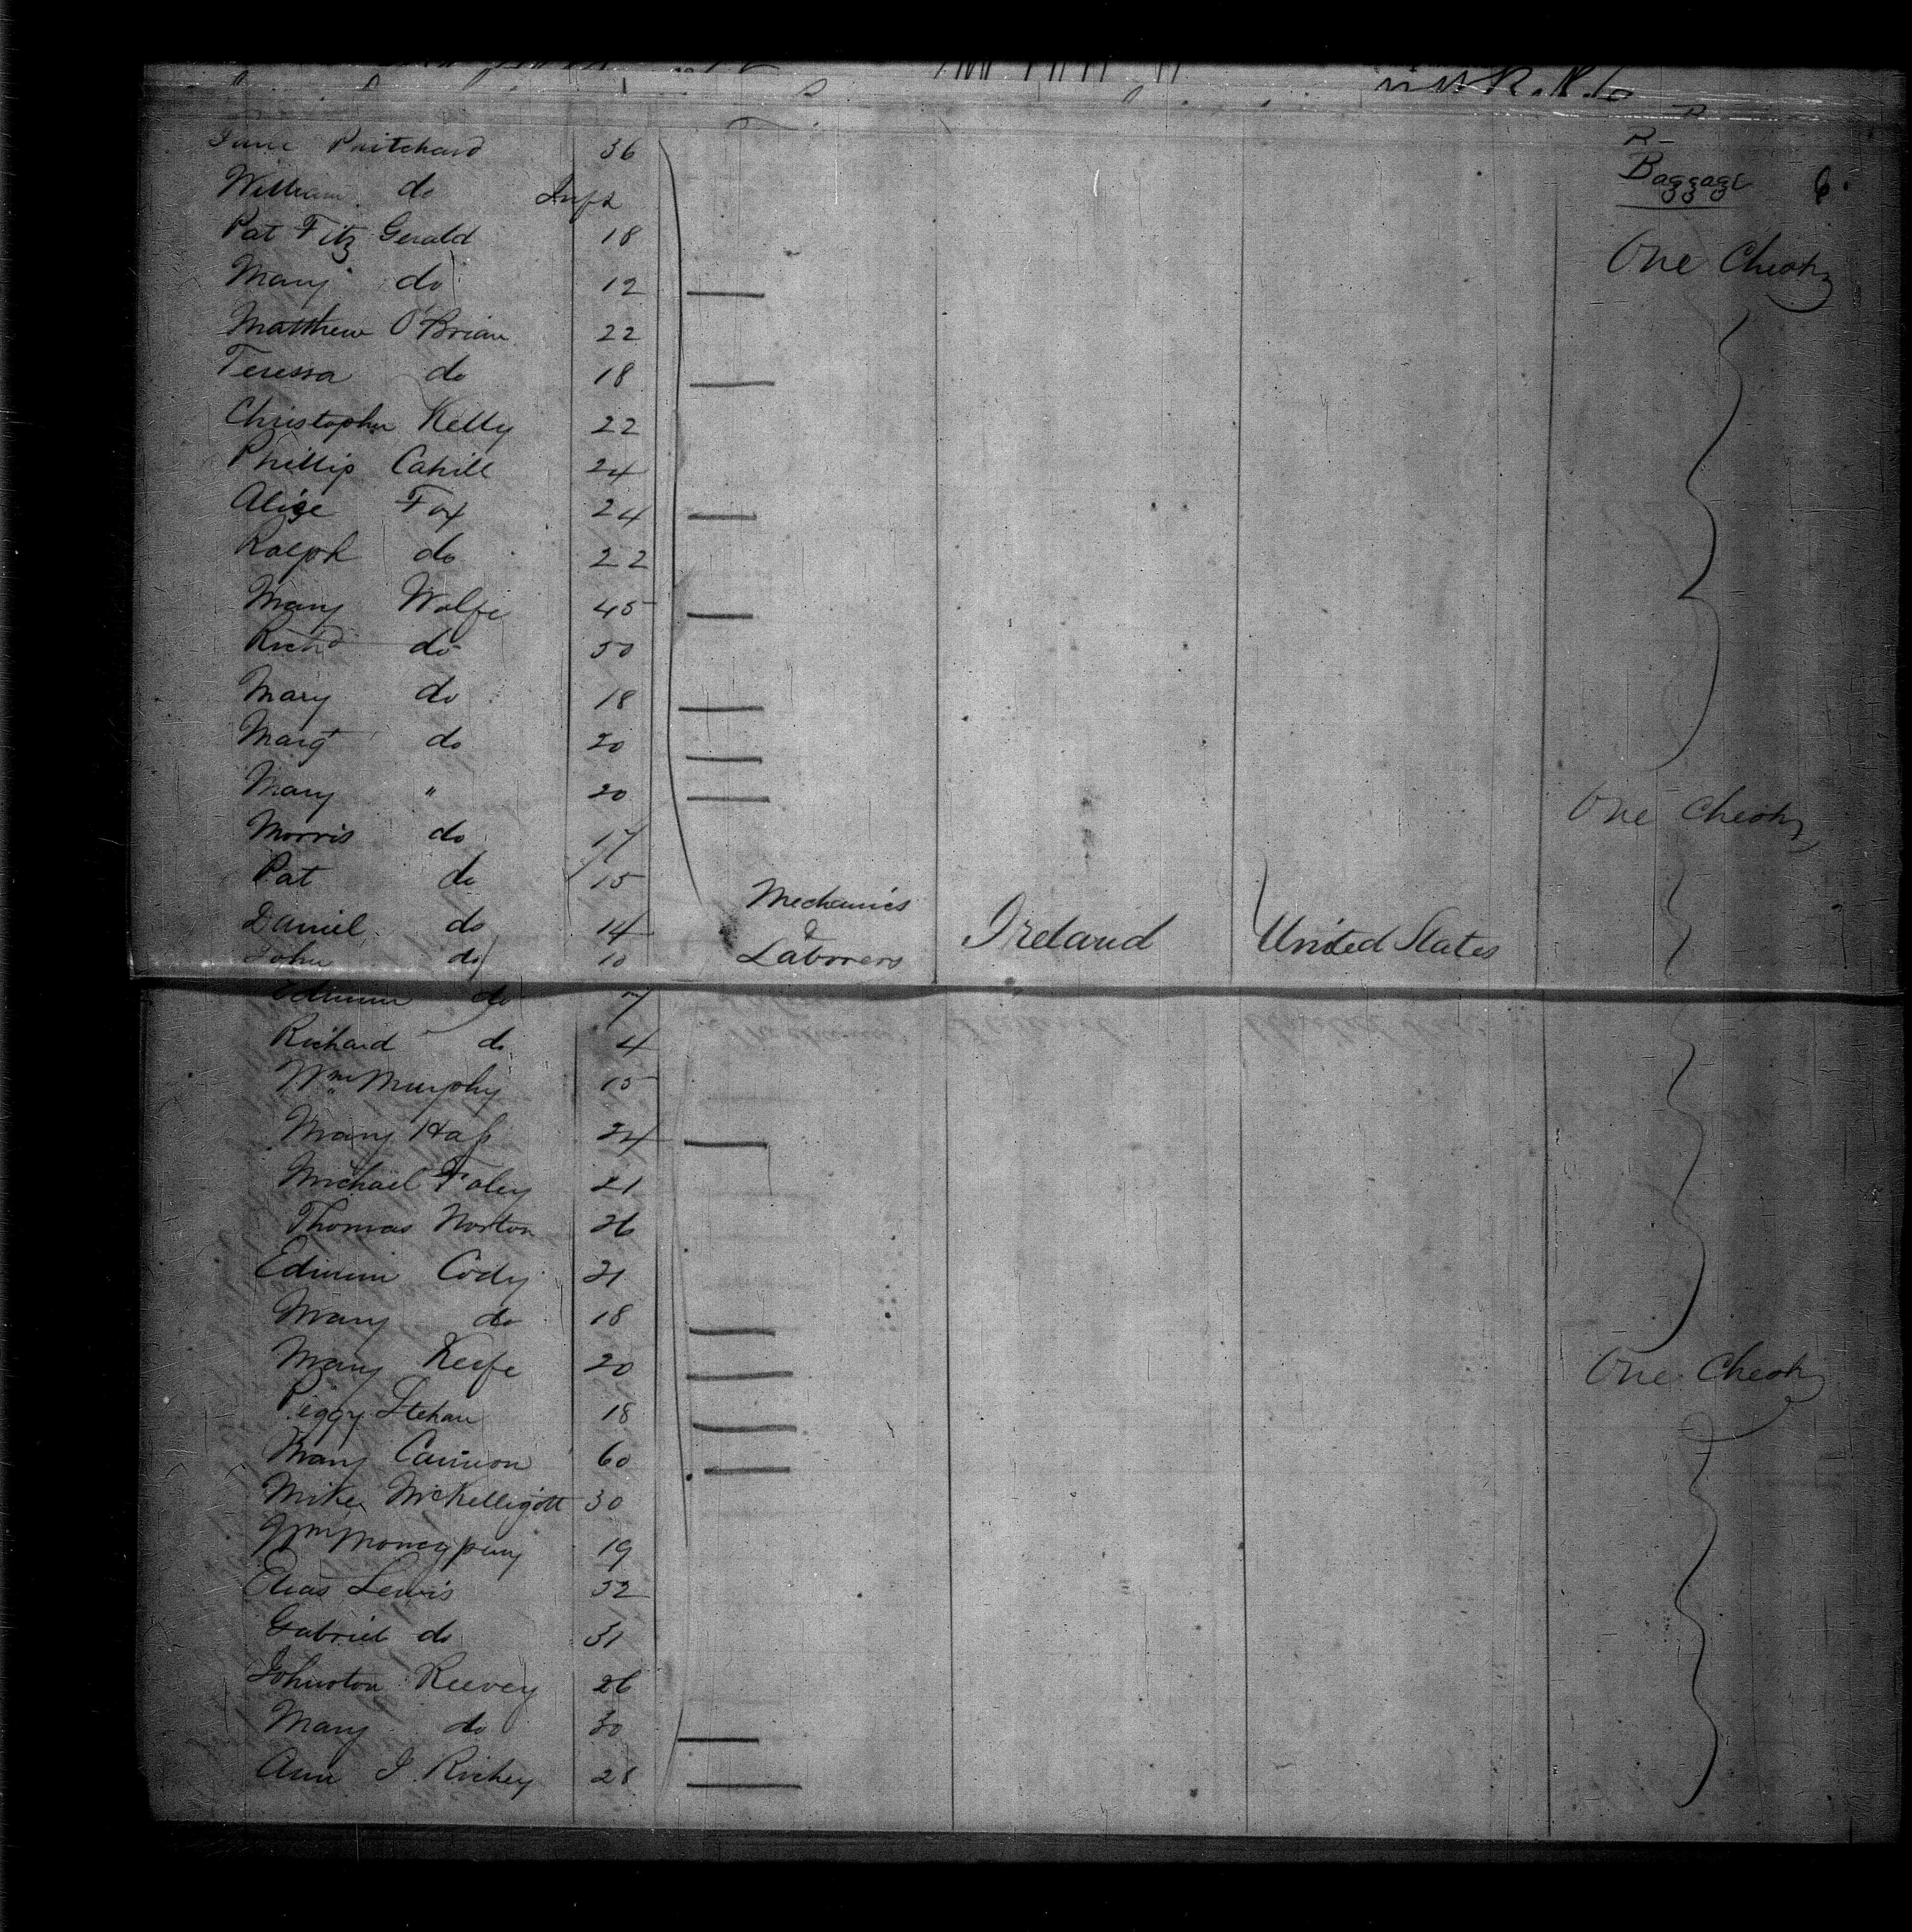 Baggage
Jane Pritchard 36
William do Inft
Pat Fitz Gerald 18 One Chest
Mary do 12
Matthew O'Brian 22
Teressa do 18
Christopher Kelly 22
Phillip Cahill 24
Alice Fox 24
Ralph do 22
Mary Wolfe 45
Richd do 50
Mary do 18
Margt do 20
Mary " 20 One Chest
Morris do 17
Pat do 15
Daniel do 14 Mechanics & Laborers Ireland United States
John do 10
do 7
Richard do 4
Wm Murphy 15
Mary 24
Michael Foley 21
Thomas Norton 26
Cody 21
Mary do 18
Mary Keefe 20 One Chest
Peggy 18
Mary Cannon 60
Mike McKelligott 30
Wm Moneypeny 19
Elias Lewis 32
Gabriel do 31
Johnston Reevey 26
Mary do 30
Ann J. Richey 28